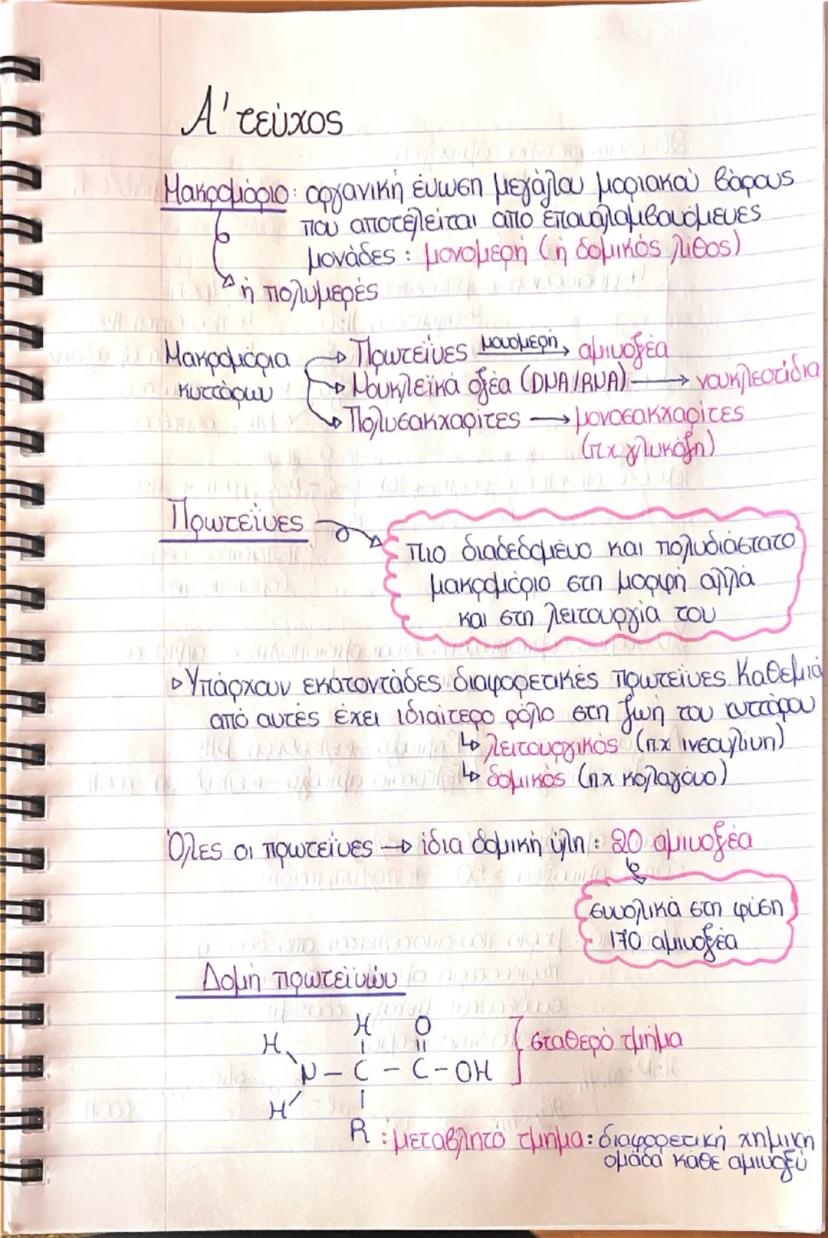 Α' τεύχος
Μακρομόριο: οργανική ένωση μεγάλου μοριακού βάρους
που αποτελείται από επαναλαμβανόμενες
μονάδες: μονομερή (ή δομικός λίθος)
ή πολυμερές
Μακρομόρια κυττάρων
Πρωτεΐνες μονομερή → αμινοξέα
Νουκλεϊκά οξέα (DNA/RNA) → νουκλεοτίδια
Πολυσακχαρίτες → μονοσακχαρίτες
(πχ γλυκόζη)
Πρωτεΐνες
πιο διαδεδομένο και πολυδιάστατο
μακρομόριο στη μορφή αλλά
και στη λειτουργία του
Υπάρχουν εκατοντάδες διαφορετικές πρωτεΐνες. Καθεμιά
από αυτές έχει ιδιαίτερο ρόλο στη ζωή του κυττάρου
↳ λειτουργικός (πχ ινσουλίνη)
↳ δομικός (πχ κολαγόνο)
Όλες οι πρωτεΐνες → ίδια δομική ύλη: 20 αμινοξέα
συνολικά στη φύση
170 αμινοξέα
Δομή πρωτεϊνών
H O
H
N – C – C – OH
H
σταθερό τμήμα
R: μεταβλητό τμήμα: διαφορετική χημική
ομάδα κάθε αμινοξύ